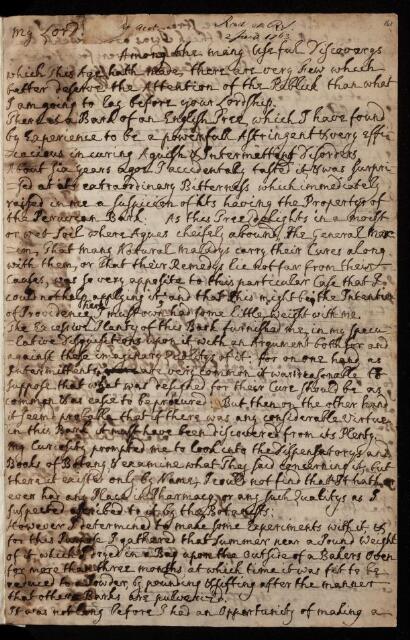 My Lord
Read
2 June 1763
Among the many usefull Discoverys
which This Age hath made, there are very few which
better deserve the Attention of the Publick than what
I am going to lay before your Lordship.
There is a Bark of an English Tree, which I have found
by Experience to be a powerfull Astringent & very effi
cacious in curing Aguish & Intermittent Disorders.
About Six years ago I accidentaly tasted it & was surpri
sed at its extraordinary Bitterness which immediately
raised in me a suspicion of its having the Property of
the Peruvian Bark. As this Tree Delights in a moist
or wet Soil where Agues cheifely abound, The General Max
im, That many Natural maladys carry their Cures along
with them, or that their Remedys lie not far from their
Causes, was so very apposite to this particular Case that I
could not help applying it; and that this might be the Intention
of Providence, I must own had some little weight with me.
The Excessive Plenty of this Bark furnished me in my Specu
lative Disquisitions upon it with an Argument both for and
against these imaginary Qualitys of it; for on one hand as
Intermittents are very common it was reasonable to
suppose that what was designed for their Cure should be as
common & as easie to be procured. But then on the other hand
it seem'd probable that if there was any considerable Virtue
in this Bark it must have been discovered from its Plenty.
My Curiosity prompted me to look into the Dispensatorys and
Books of Botany & examine what They said concerning it; but
there it existed only by Name, I could not find that It hath
ever has any Place in Pharmacy, or any such Qualitys as I
suspected ascribed to it by the Botanists.
However I determined to make some Experiments with it &
for this Purpose I gathered that Summer near a Pound Weight
of it which I dryed in a Bag upon the Outside of a Bakers Oven
for more than three months at which time it was fit to be
reduced to a Powder by pounding & sifting after the manner
that other Barks are pulverized.
It was not long before I had an Opportunity of making a